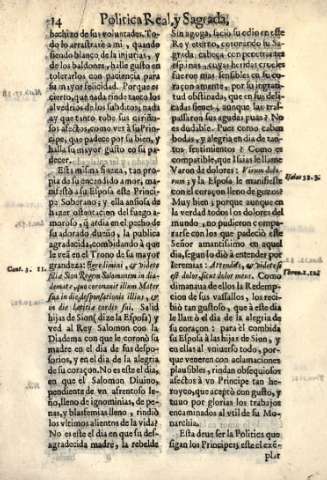 14 Politica Real, y Sagrada,
hechizo de sus voluntades. To-
do lo arrastrarè a mi, quando
siendo blanco de la injurias, y
de los baldones, halle gusto en
tolerarlos con paciencia para
su mayor felicidad. Porque es
cierto, que nada rinde tanto los
alvedrios de los subditos; nada
ay que tanto robe sus cariño-
sos afectos, como ver à su Prin-
cipe, que padece por su bien, y
halla su mayor gusto en su pa-
decer.
Esta misma fineza, tan pro-
pia de su encendido amor, ma-
nifestò a su Esposa este Princi-
pe Soberano; y ella ansiosa de
hazer ostentacion del fuego a-
moroso, que ardia en el pecho de
su adorado dueño, la publica
agradecida, combidando à que
le veàn en el Trono de su mayor
grandeza: Egredimini, & videte
filiæ Sion Regem Salomonem in dia-
demate, quo coronavit illum Mater
sua in die desponsationis illius, &
in die lætitiæ cordis sui. Salid
hijas de Sion (dize la Esposa) y
ved al Rey Salomon con la
Diadema con que le coronò su
madre en el dia de sus despo-
sorios, y en el dia de la alegria
de su coraçon. No es este el dia,
en que el Salomon Divino,
pendiente de un afrentoso le-
ño, lleno de ignominias, de pe-
nas, y blasfemias lleno, rindiò
los vltimos alientos de la vida?
No es este el dia en que su des-
agradecida madre, la rebelde
Cant. 3. 11.
Sinagoga, saciò su odio en este
Rey eterno, coronando su Sa-
grada cabeça con penetrantes
espinas, cuyas heridas crueles
fueron mas sensibles en su co-
raçon amante, por su ingrati-
tud obstinada, que en sus deli-
cadas sienes, aunque las tras-
passaron sus agudas puas? No
es dudable. Pues como caben
bodas, y alegria en dia de tan-
tos sentimientos? Como es
compatible, que Isaias le llame
Varon de dolores: Virum dolo-
rum, y la Esposa le manifieste
con el coraçon lleno de gozos?
Muy bien; porque aunque en
la verdad todos los dolores del
mundo, no pudieron compa-
rarse con los que padeciò este
Señor amantissimo en aquel
dia, segun lo diò à entender por
Jeremias: Attendite, & videte si
est dolor, sicut dolor meus. Como
dimanava de ellos la Redemp-
cion de sus vassallos, los reci-
biò tan gustoso, que à este dia
le llamò el dia de la alegria de
su coraçon: para el combida
su Esposa à las hijas de Sion, y
en ellas al vniverso todo, por-
que veneren con aclamaciones
plausibles, rindan obsequiosos
afectos à vn Principe tan he-
royco, que aceptò con gusto, y
tuvo por glorias los trabajos
encaminados al vtil de su Mo-
narchia.
Esta deve ser la Politica que
sigan los Principes; este el exē-
plar
Isaiæ 53. 3.